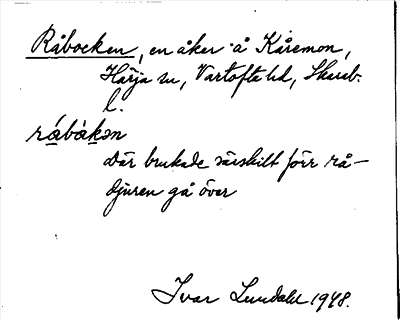 Råbocken, en åker å Kåremon,
Härja sn, Vartofta hd, Skarab.
l.
råbåkən
där brukade särskilt förr rå-
djuren gå över
Ivar Lundahl 1948.